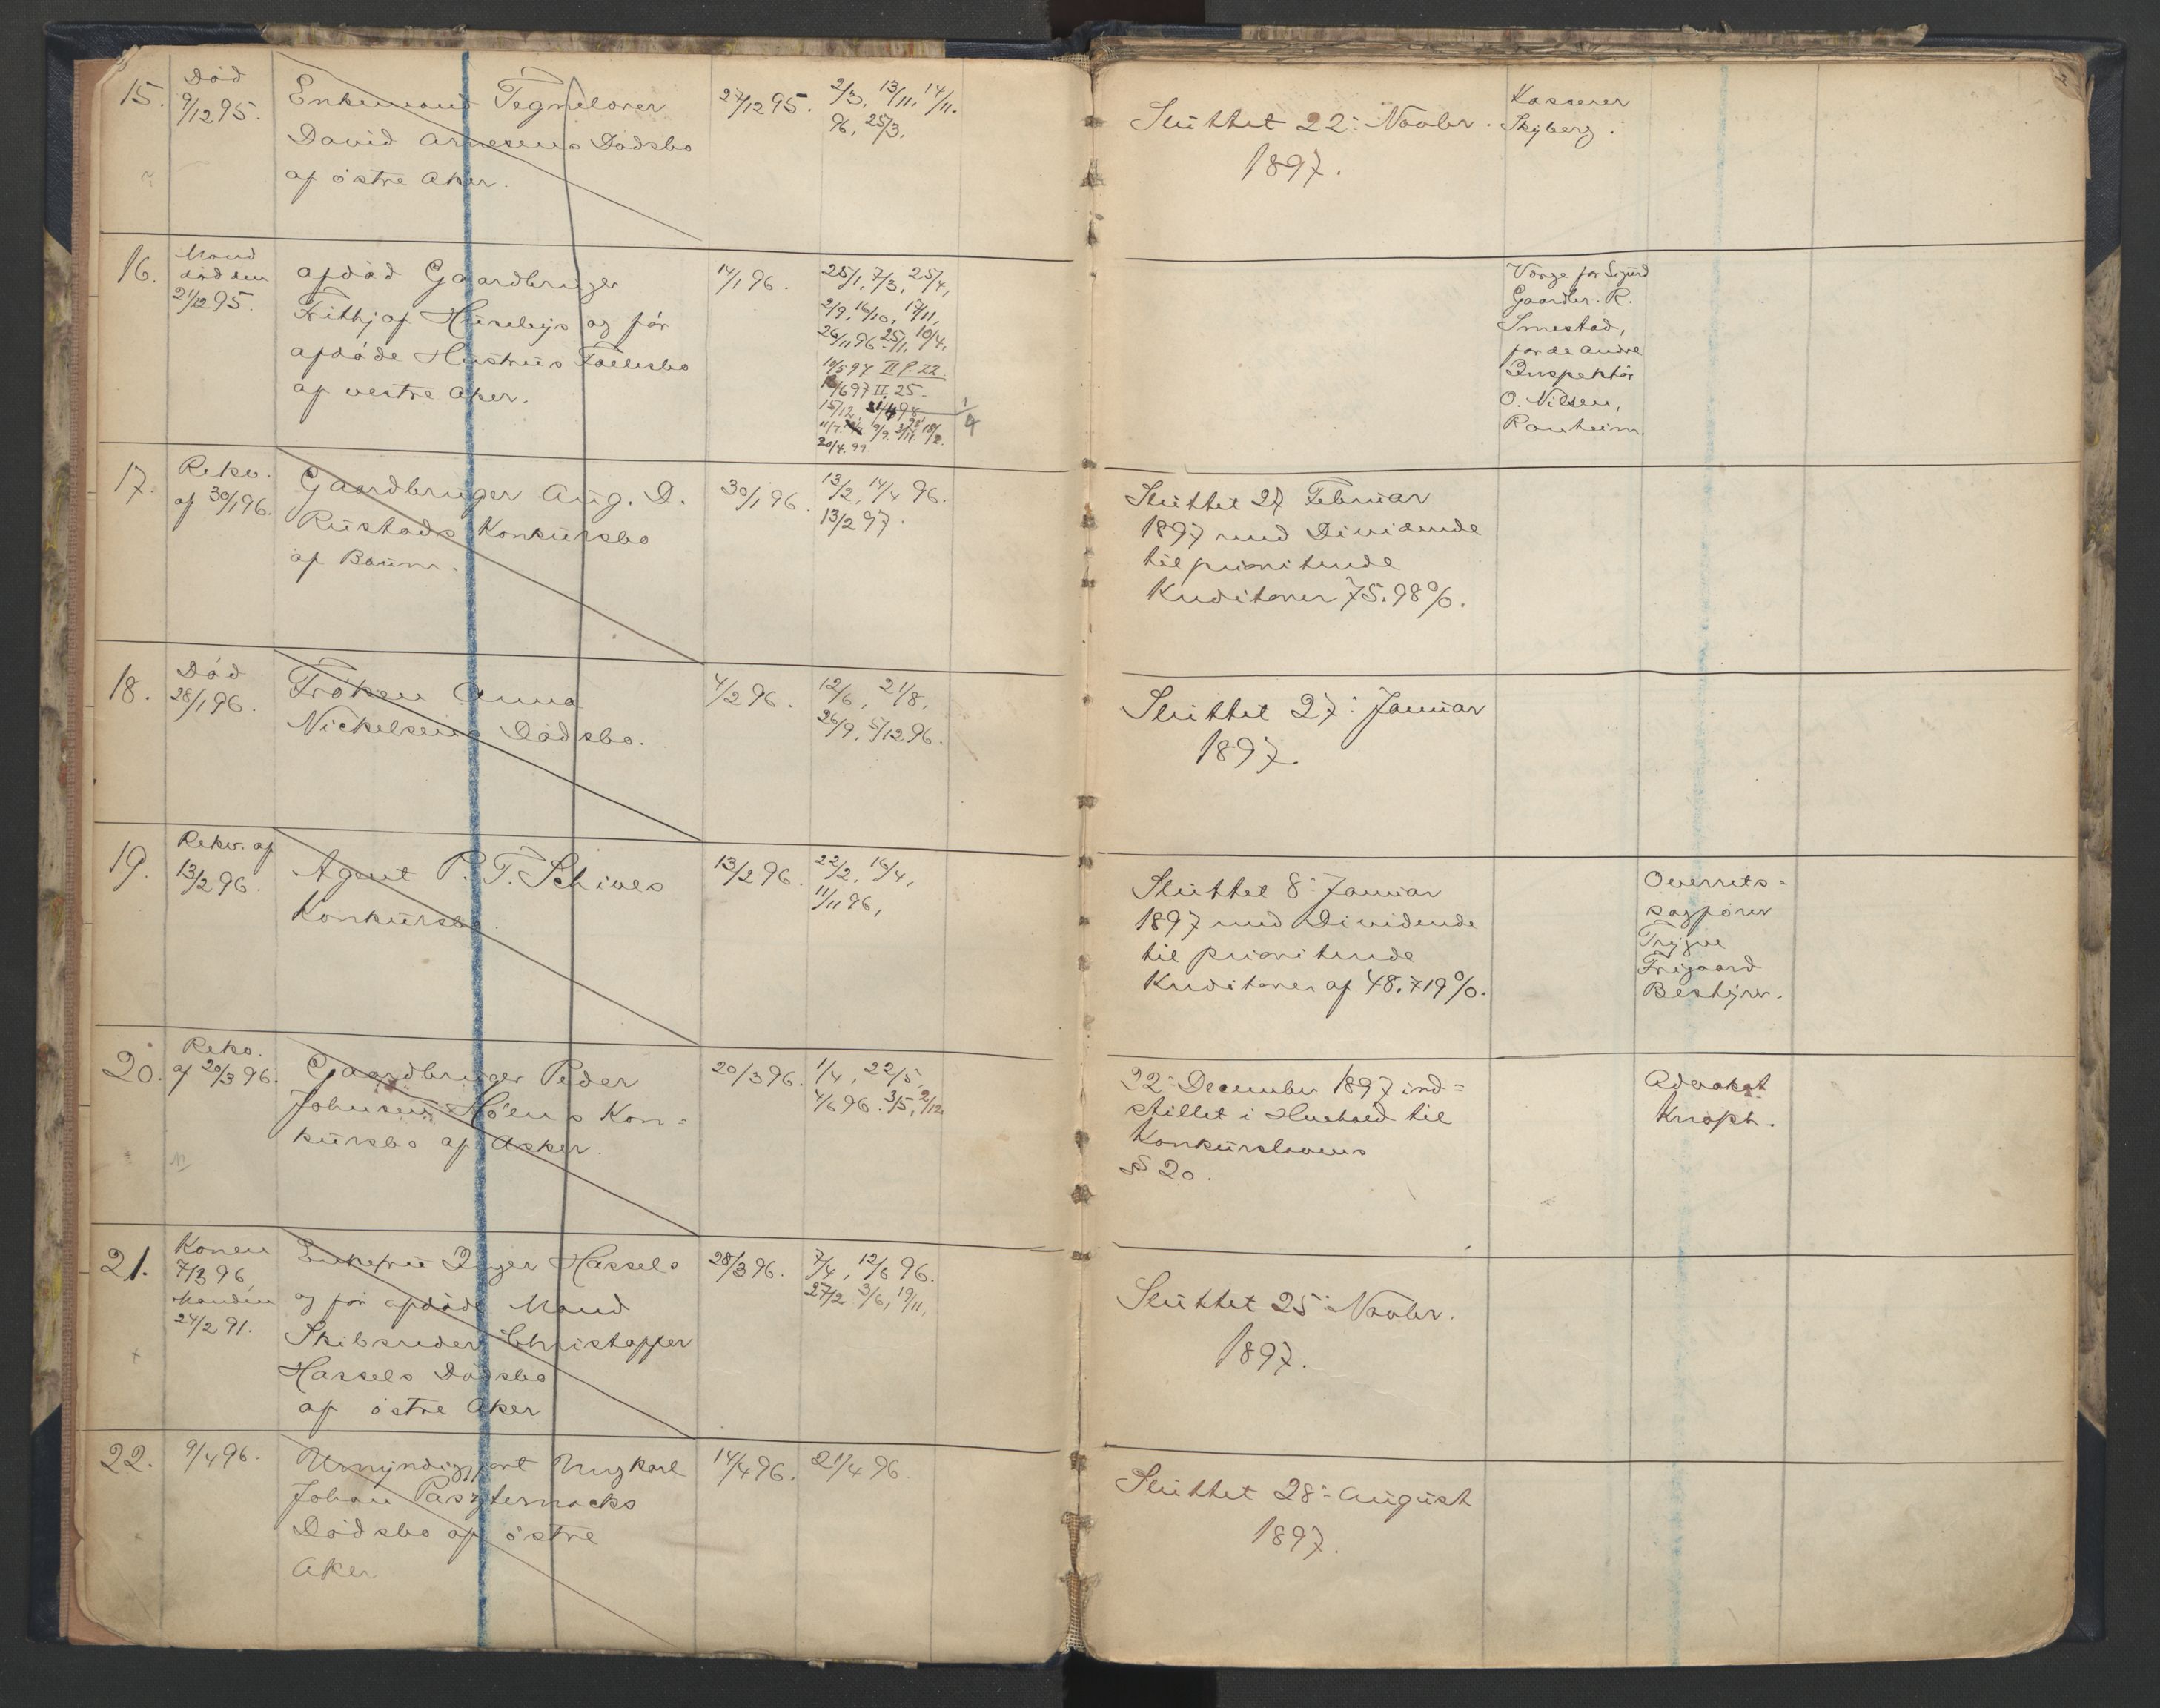 15.
Död
9/12 95.
Enkemand Tegnelærer
David Arnesens Dödsbo
af östre Aker.
27/12 95.
2/3, 13/11, 14/11.
96, 25/3,
Sluttet 22: Novbr.
1897.
Kasserer
Skyberg.
16.
Mand
död den
21/12 95.
afdöd Gaardbruger
Frithjof Huseby's og för
afdöde Hustrus Fællesbo
af vestre Aker.
14/1 96.
25/1, 7/3, 25/4,
2/9, 16/10, 17/11,
26/11 96. 25/1, 10/4,
10/5 97 II P. 22.
/6 97 II. 25.
15/12
20/4. 99.
Værge for Sigurd
Gaardbr. R.
Smestad,
for de andre
Inspektör
O. Nilsen,
Ranheim.
17.
Rekv.
af 30/1 96.
Gaardbruger Aug. D.
Rustads Konkursbo
af Bærum.
30/1 96.
13/2, 14/4 96.
13/2 97.
Sluttet 27 Februar
1897 med Dividende
til prioriterede
Kreditorer 75.98%.
18.
Död
28/1 96.
Fröken Anna
Nickelsens Dödsbo.
4/2 96.
12/6, 21/8,
26/9, 5/12 96.
Sluttet 27: Januar
1897.
19.
Rekv. af
13/2 96.
Agent P. T. Schives
Konkursbo.
13/2 96.
22/2, 16/4,
11/11 96,
Sluttet 8: Januar
1897 med Dividende
til prioriterede
Kreditorer af 48.719%.
Overrets=
sagförer
Trygve
Frigaard
Bestyrer.
20.
Rekv.
af 20/3 96.
Gaardbruger Peder
Johnsen Höens Kon=
kursbo af Asker.
20/3 96.
1/4, 22/5,
4/6 96. 3/5, 2/12
22: December 1897 ind=
stillet i Henhold til
Konkurslovens
§ 20.
Advokat
Knoph.
21.
Konen
7/3 96,
Manden
24/2 91.
Enkefru Inger Hassels
og för afdöde Mand
Skibsreder Christopher
Hassels Dödsbo
af östre Aker
28/3 96.
7/4, 12/6 96.
27/2 3/6, 19/11,
Sluttet 25: Novbr.
1897.
22.
9/4 96.
Umyndiggjort Ungkarl
Johan Paszternacks
Dödsbo af östre
Aker
14/4 96.
21/4 96.
Sluttet 28: August
1897.